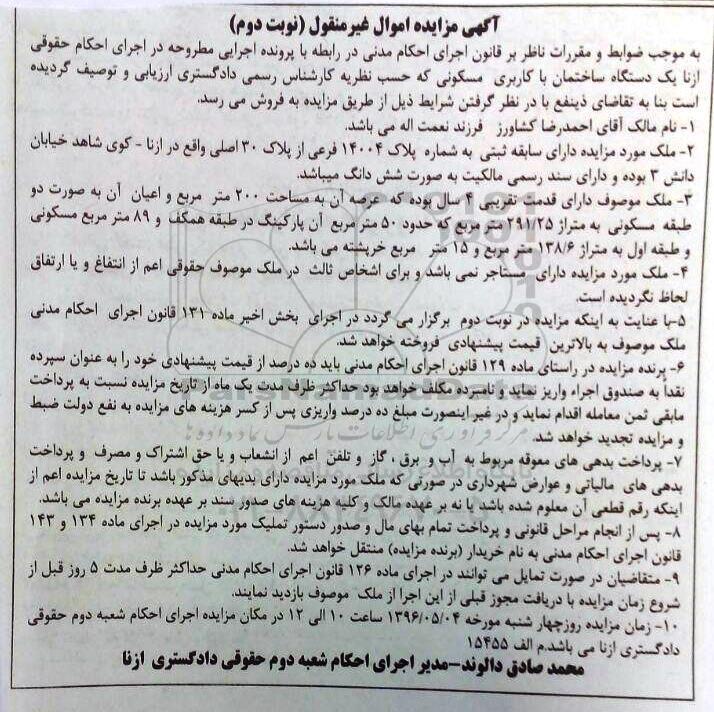 آگهی مزایده اموال غیرمنقول (نوبت دوم)
به موجب ضوابط و مقررات ناظر بر قانون اجرای احکام مدنی در رابطه با پرونده اجرایی مطروحه در اجرای احکام حقوقی
ازنا یک دستگاه ساختمان با کاربری مسکونی که حسب نظریه کارشناس رسمی دادگستری ارزیابی و توصیف گردیده
است بنا به تقاضای ذینفع با در نظر گرفتن شرایط ذیل از طریق مزایده به فروش می رسد.
۱- نام مالک آقای احمدرضا کشاورز فرزند نعمت اله می باشد.
۲- ملک مورد مزایده دارای سابقه ثبتی به شماره پلاک ۱۴۰۰۴ فرعی از پلاک ۳۰ اصلی واقع در ازنا - کوی شاهد خیابان
دانش ۳ بوده و دارای سند رسمی مالکیت به صورت شش دانگ میباشد.
۳- ملک موصوف دارای قدمت تقریبی ۴ سال بوده که عرصه آن به مساحت ۲۰۰ متر مربع و اعیان آن به صورت دو
طبقه مسکونی به متراژ ۲۹۱/۲۵ متر مربع که حدود ۵۰ متر مربع آن پارکینگ در طبقه همکف و ۸۹ متر مربع مسکونی
و طبقه اول به متراژ ۱۳۸/۶ متر مربع و ۱۵ متر مربع خرپشته می باشد.
۴- ملک مورد مزایده دارای مستاجر نمی باشد و برای اشخاص ثالث در ملک موصوف حقوقی اعم از انتفاع و یا ارتفاق
لحاظ نگردیده است.
۵-با عنایت به اینکه مزایده در نوبت دوم برگزار می گردد در اجرای بخش اخیر ماده ۱۳۱ قانون اجرای احکام مدنی
ملک موصوف به بالاترین قیمت پیشنهادی فروخته خواهد شد.
۶- برنده مزایده در راستای ماده ۱۲۹ قانون اجرای احکام مدنی باید ده درصد از قیمت پیشنهادی خود را به عنوان سپرده
نقداً به صندوق اجراء واریز نماید و نامبرده مکلف خواهد بود حداکثر ظرف مدت یک ماه از تاریخ مزایده نسبت به پرداخت
مابقی ثمن معامله اقدام نماید و در غیر اینصورت مبلغ ده درصد واریزی پس از کسر هزینه های مزایده به نفع دولت ضبط
و مزایده تجدید خواهد شد.
۷- پرداخت بدهی های معوقه مربوط به آب و برق ، گاز و تلفن اعم از انشعاب و یا حق اشتراک و مصرف و پرداخت
بدهی های مالیاتی و عوارض شهرداری در صورتی که ملک مورد مزایده دارای بدیهای مذکور باشد تا تاریخ مزایده اعم از
اینکه رقم قطعی آن معلوم شده باشد یا نه بر عهده مالک و کلیه هزینه های صدور سند بر عهده برنده مزایده می باشد.
۸- پس از انجام مراحل قانونی و پرداخت تمام بهای مال و صدور دستور تملیک مورد مزایده در اجرای ماده ۱۳۴ و ۱۴۳
قانون اجرای احکام مدنی به نام خریدار (برنده مزایده) منتقل خواهد شد.
۹- متقاضیان در صورت تمایل می توانند در اجرای ماده ۱۲۶ قانون اجرای احکام مدنی حداکثر ظرف مدت ۵ روز قبل از
شروع زمان مزایده با دریافت مجوز قبلی از این اجرا از ملک موصوف بازدید نمایند.
۱۰- زمان مزایده روزچهار شنبه مورخه ۱۳۹۶/۰۵/۰۴ ساعت ۱۰ الی ۱۲ در مکان مزایده اجرای احکام شعبه دوم حقوقی
دادگستری ازنا می باشد.م الف ۱۵۴۵۵
محمد صادق دالوند-مدیر اجرای احکام شعبه دوم حقوقی دادگستری ازنا